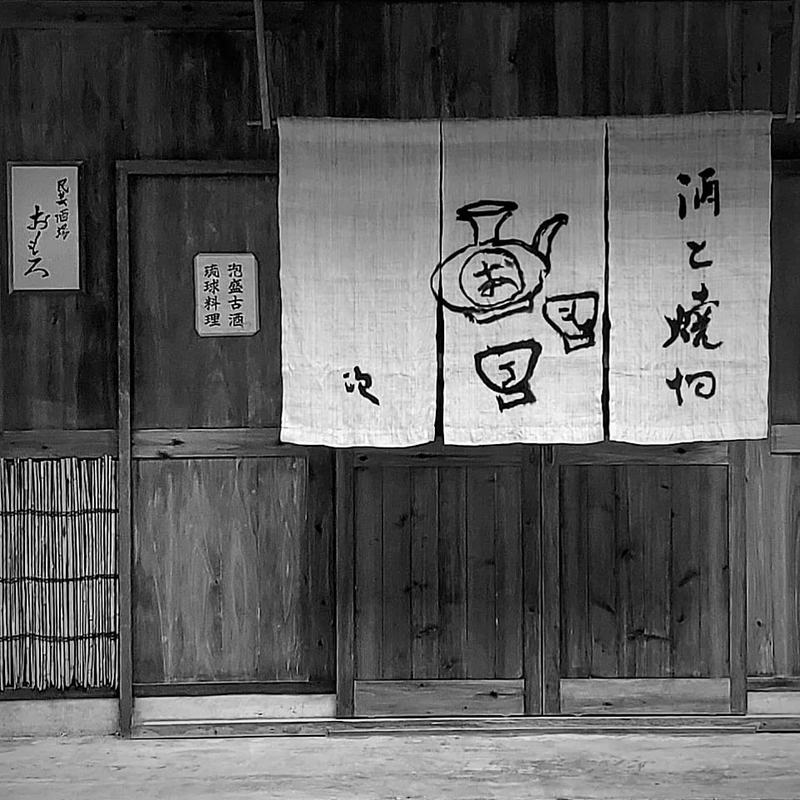 酒と燒物
お
泡盛古酒
琉球料理
民芸酒場
おもろ